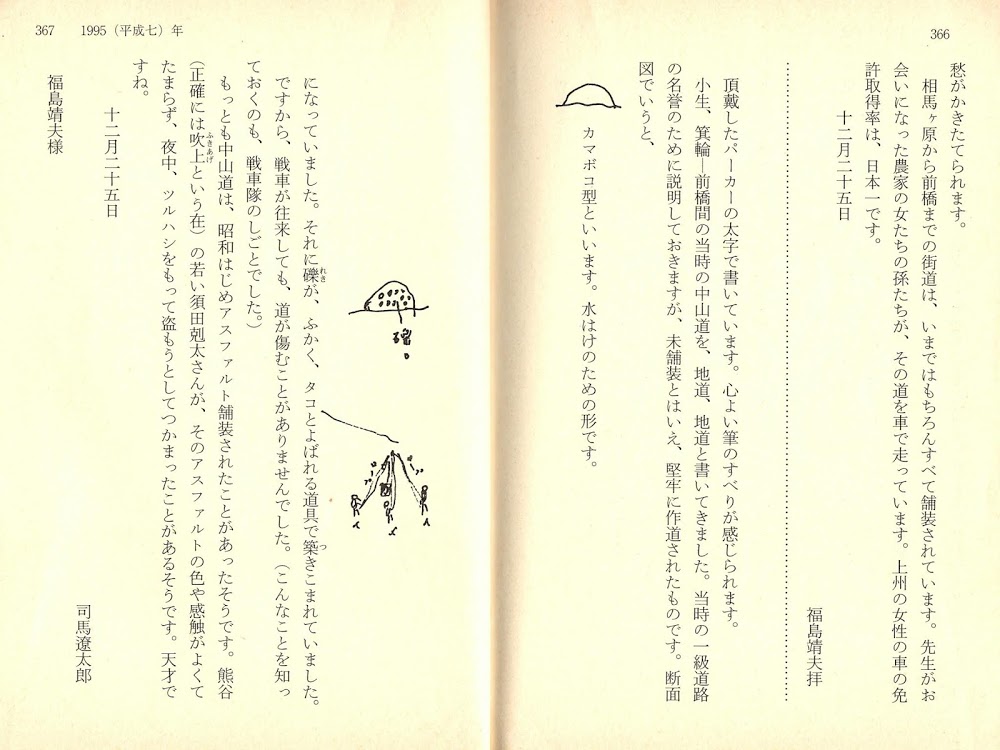 366
愁がかきたてられます。
相馬ヶ原から前橋までの街道は、いまではもちろんすべて舗装されています。先生がお
会いになった農家の女たちの孫たちが、その道を車で走っています。上州の女性の車の免
許取得率は、日本一です。
十二月二十五日
福島靖夫拝
頂戴したパーカーの太字で書いています。心よい筆のすべりが感じられます。
小生、箕輪―前橋間の当時の中山道を、地道、地道と書いてきました。当時の一級道路
の名誉のために説明しておきますが、未舗装とはいえ、堅牢に作道されたものです。断面
図でいうと、
カマボコ型といいます。水はけのための形です。
367 1995（平成七）年
礫。
になっていました。それに礫が、ふかく、タコとよばれる道具で築きこまれていました。
れき
つ
ですから、戦車が往来しても、道が傷むことがありませんでした。（こんなことを知っ
ておくのも、戦車隊のしごとでした。）
もっとも中山道は、昭和はじめアスファルト舗装されたことがあったそうです。熊谷
（正確には吹上という在）の若い須田剋太さんが、そのアスファルトの色や感触がよくて
ふきあげ
たまらず、夜中、ツルハシをもって盗もうとしてつかまったことがあるそうです。天才で
すね。
十二月二十五日
司馬遼太郎
福島靖夫様